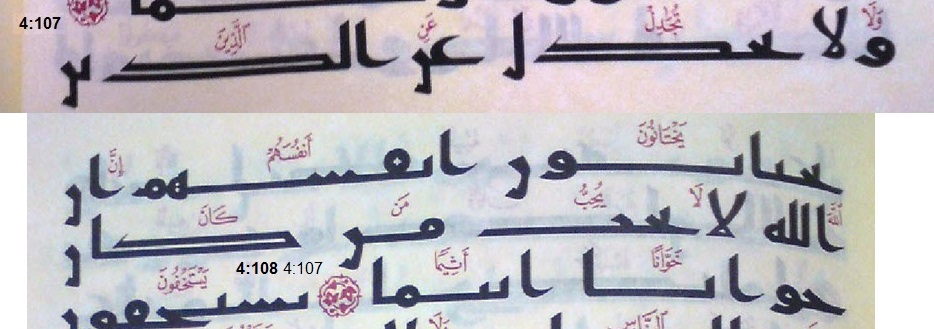 4:107
وَلَا تُجَٰدِلْ عَنِ ٱلَّذِينَ
ولا تجدل عن الذين
يَخْتَانُونَ أَنفُسَهُمْ إِنَّ
يختانون انفسهم ان
ٱللَّهَ لَا يُحِبُّ مَن كَانَ
الله لا يحب من كان
خَوَّانًا أَثِيمًا 4:108 4:107 يَسْتَخْفُونَ
خوانا اثيما يستخفون